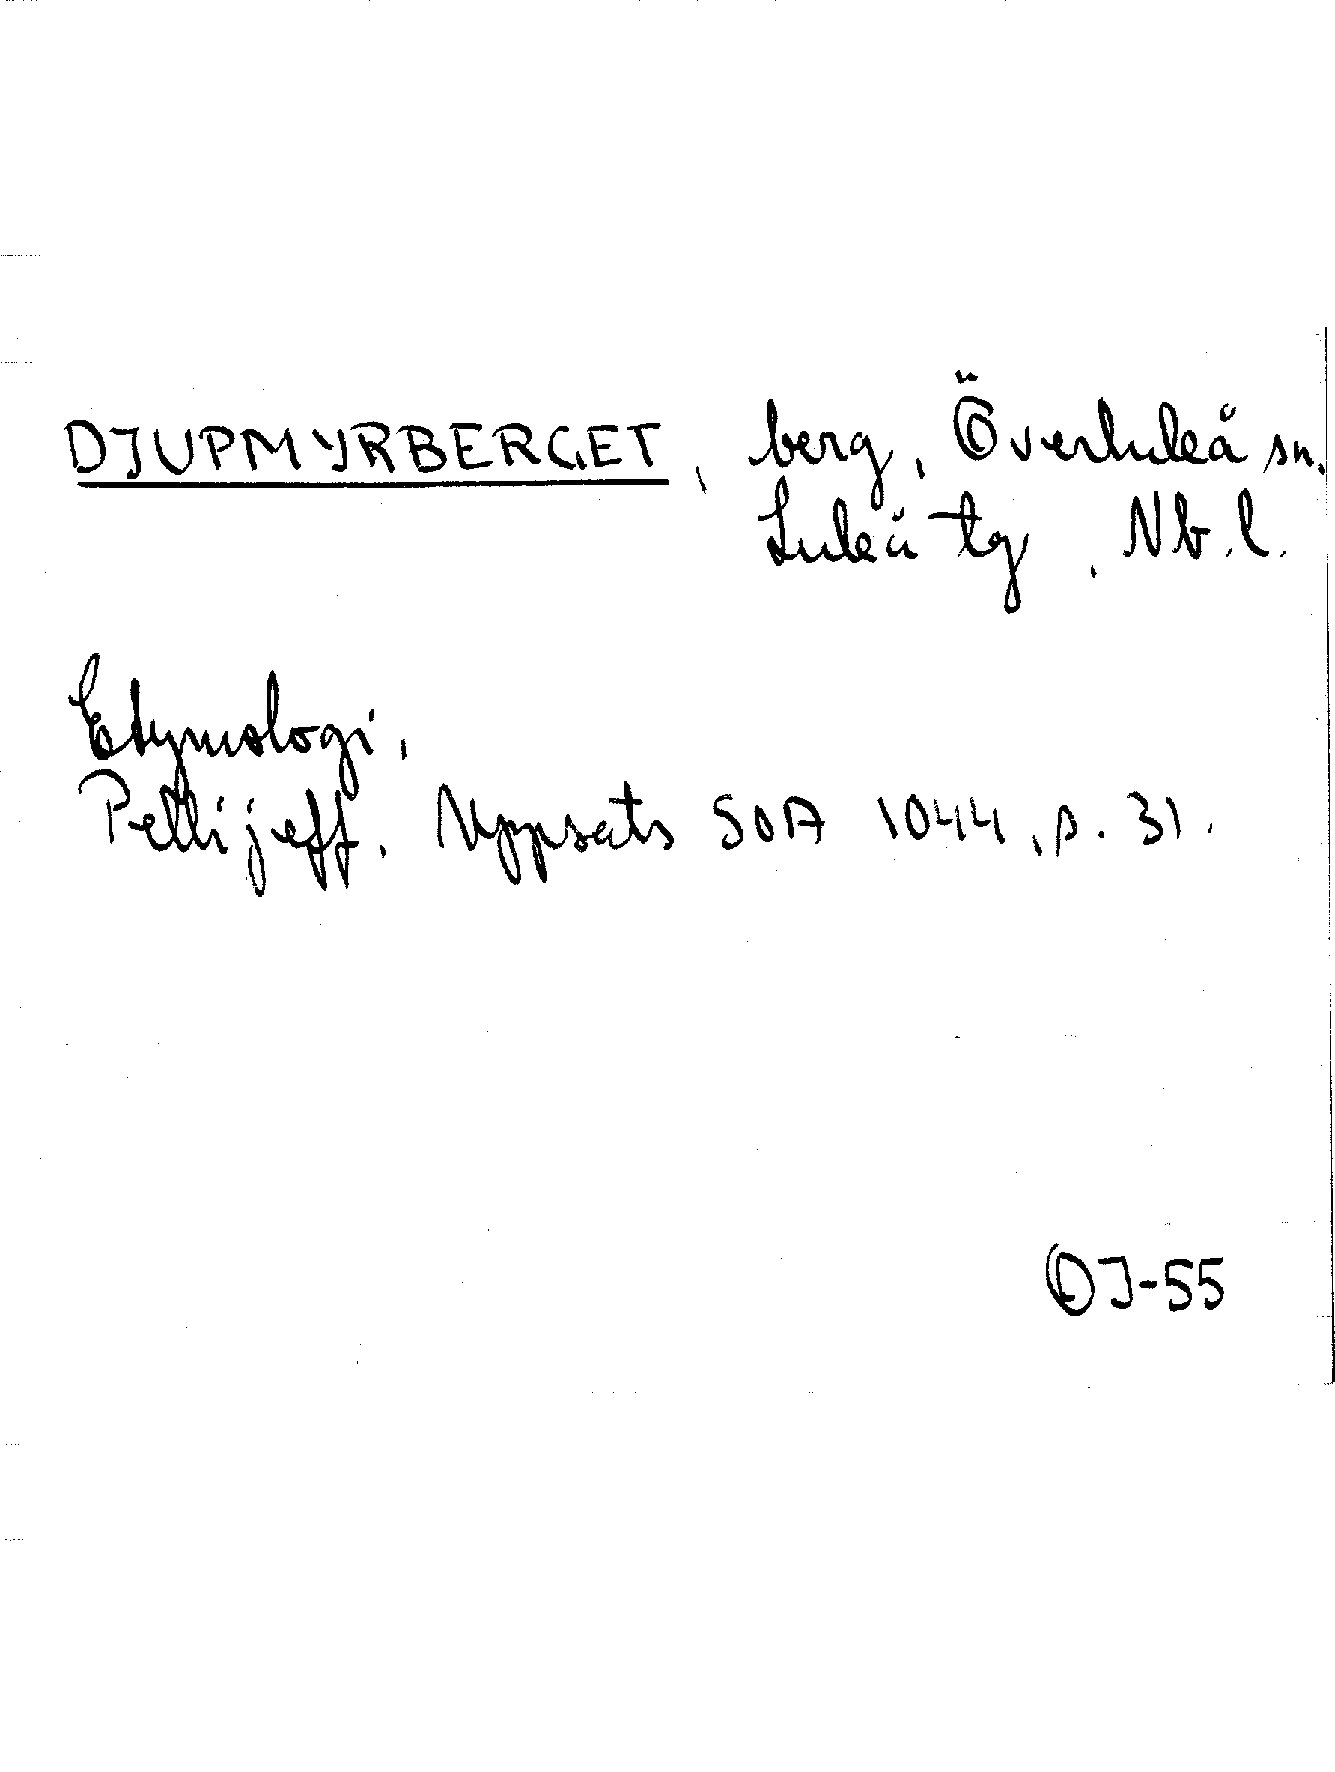 DJUPMYRBERGET, berg, Överluleå sn.
Luleå tg, Nb.l.
Etymologi,
Pellijeff, Uppsats SOA 1044, s. 31.
OJ-55